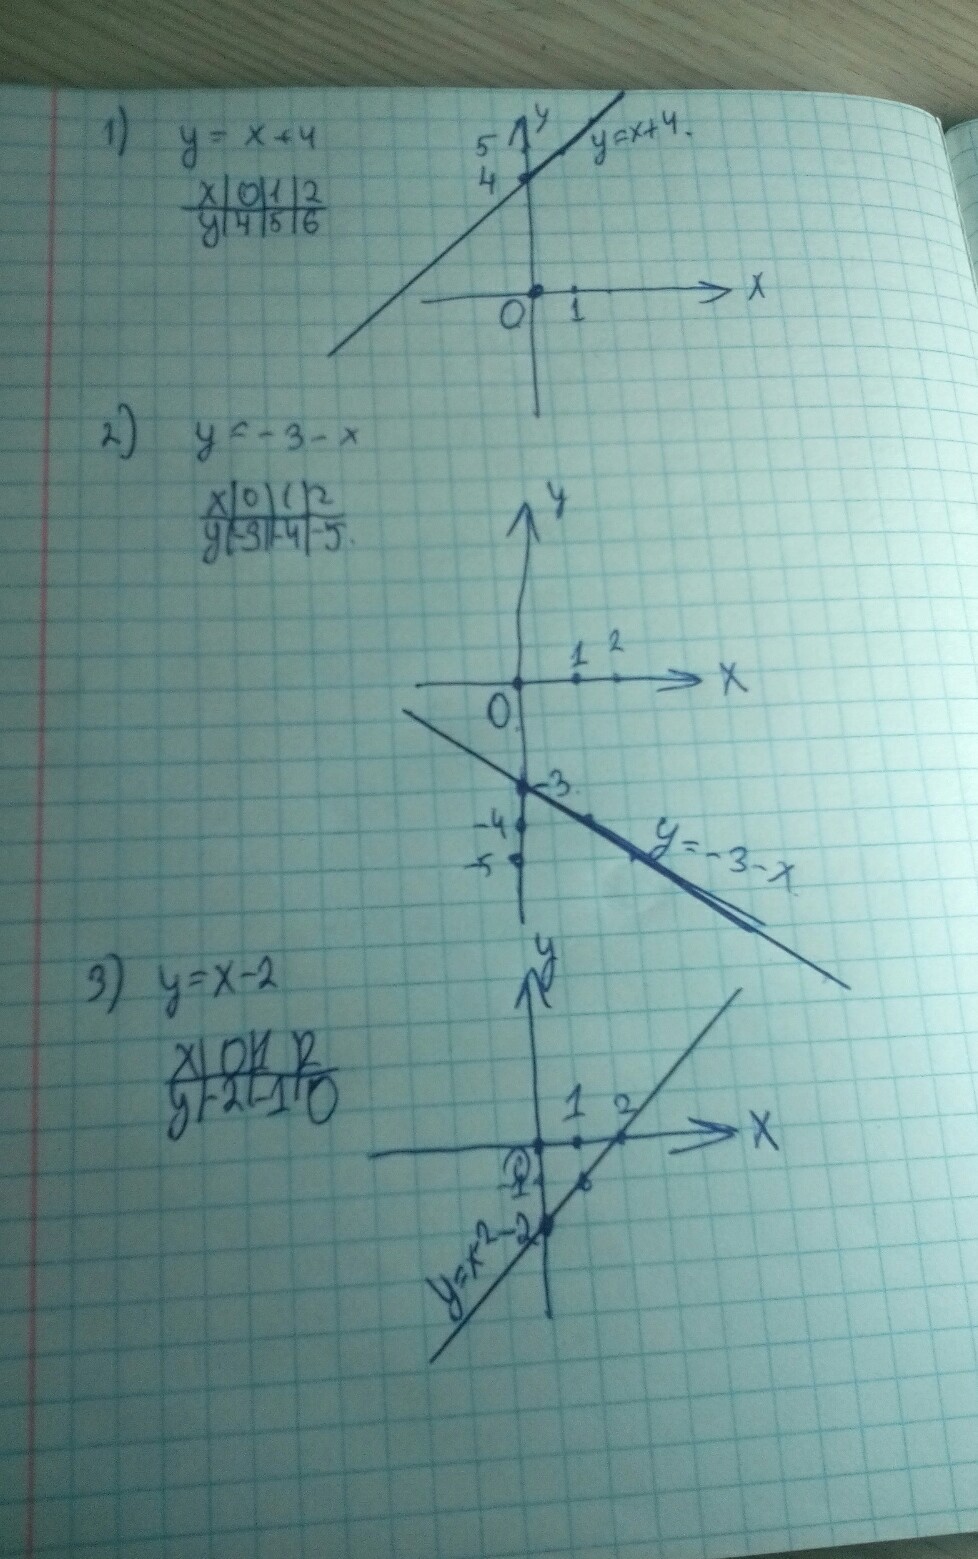 1) y = x + 4
x | 0 | 1 | 2
y | 4 | 5 | 6
y
5
4
y=x+4.
0 1 x
2) y = -3 - x
x | 0 | 1 | 2
y | -3 | -4 | -5.
y
1 2
0 x
-3
-4
-5
y=-3-x
3) y=x-2
x | 0 | 1 | 2
y | -2 | -1 | 0
y
1 2 x
-1
-2
y=x2-2